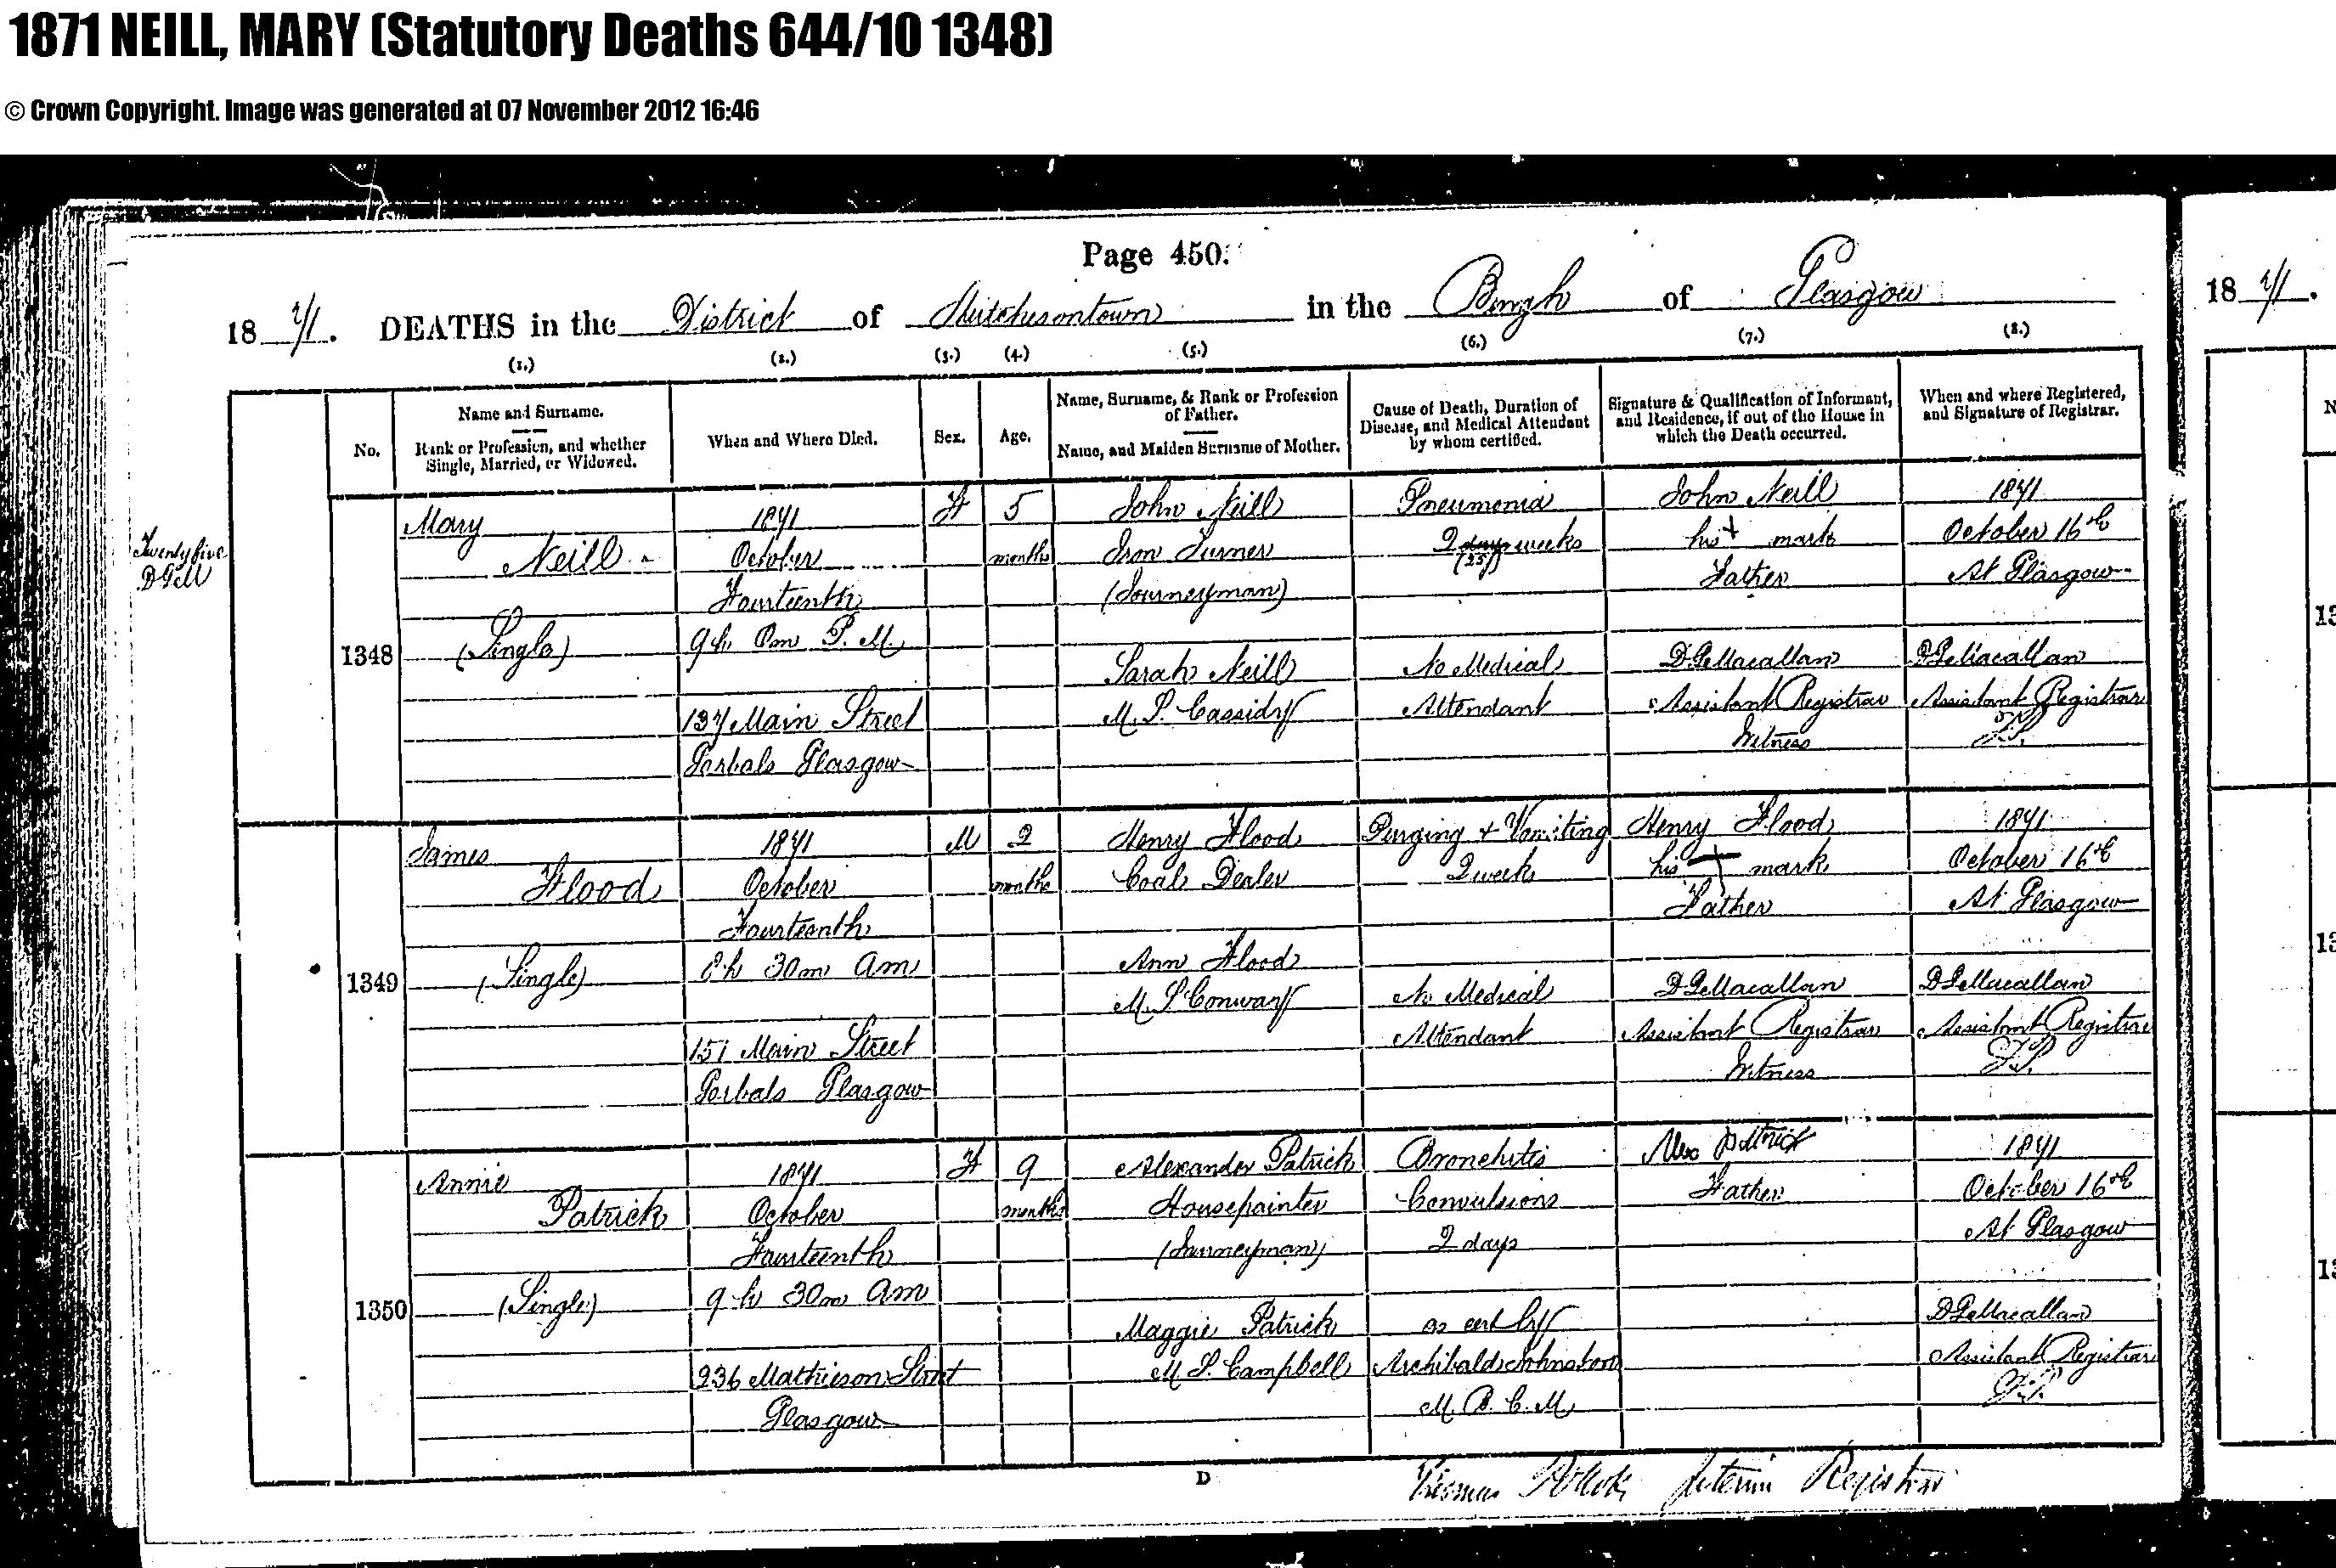 1871 NEILL, MARY (Statutory Deaths 644/10 1348)
© Crown Copyright. Image was generated at 07 November 2012 16:46
Page 450.
1871. DEATHS in the District of Hutchesontown in the Burgh of Glasgow
1871.
(1.) (2.) (3.) (4.) (5.) (6.) (7.) (8.)
No.
Name and Surname.
Rank or Profession, and whether
Single, Married, or Widowed.
When and Where Died.
Sex.
Age.
Name, Surname, & Rank or Profession
of Father.
Name, and Maiden Surname of Mother.
Cause of Death, Duration of
Disease, and Medical Attendant
by whom certified.
Signature & Qualification of Informant,
and Residence, if out of the House in
which the Death occurred.
When and where Registered,
and Signature of Registrar.
Twenty five
1348
Mary
Neill
(Single)
1871
October
Fourteenth
9h 0m P.M.
137 Main Street
Gorbals Glasgow
F
5
months
John Neill
Iron Turner
(Journeyman)
Sarah Neill
M.S. Cassidy
Pneumonia
2 days weeks
(25)
No Medical
Attendant
John Neill
his + mark
Father
D.G. Macallan
Assistant Registrar
Witness
1871
October 16th
At Glasgow
D.G. Macallan
Assistant Registrar
1349
James
Flood
(Single)
1871
October
Fourteenth
h 30m AM
151 Main Street
Gorbals Glasgow
M
2
months
Henry Flood
Coal Dealer
Ann Flood
M.S. Conway
Purging & Vomiting
2 weeks
No Medical
Attendant
Henry Flood
his + mark
Father
D.G. Macallan
Assistant Registrar
Witness
1871
October 16th
At Glasgow
D.G. Macallan
Assistant Registrar
1350
Annie
Patrick
(Single)
1871
October
Fourteenth
9h 30m AM
236 Mathieson Street
Glasgow
F
9
months
Alexander Patrick
Housepainter
(Journeyman)
Maggie Patrick
M.S. Campbell
Bronchitis
Convulsions
2 days
as cert by
Archibald Johnston
M.B. C.M
Alex Patrick
Father
1871
October 16th
At Glasgow
D.G. Macallan
Assistant Registrar
D
Thomas Pollok Interim Registrar